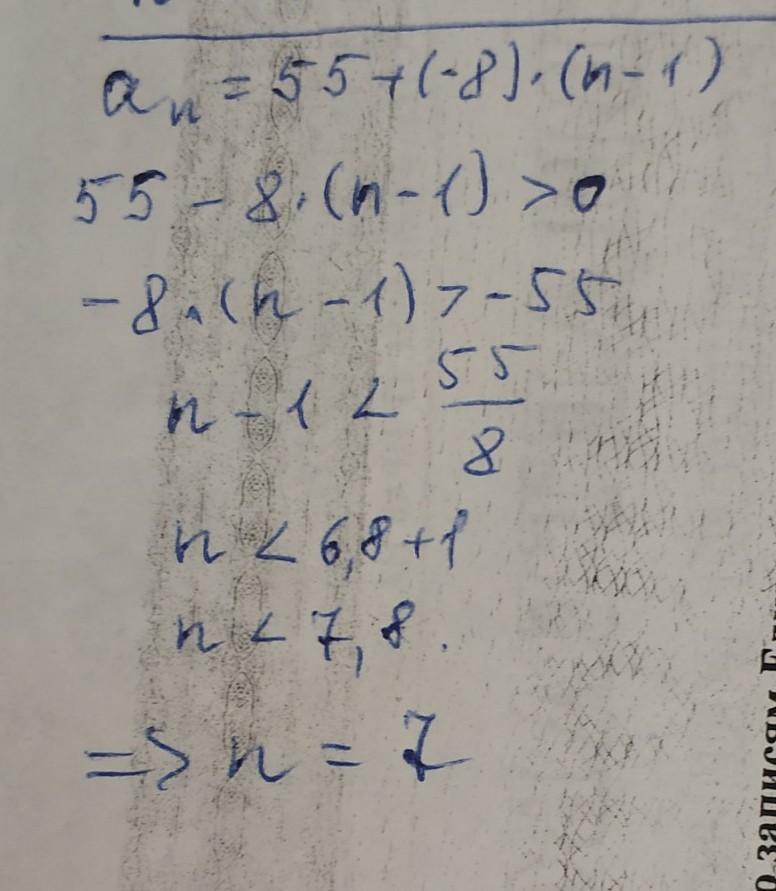 aₙ = 55 + (-8) · (n - 1)
55 - 8 · (n - 1) > 0
-8 · (n - 1) > -55
n - 1 < 55/8
n < 6,8 + 1
n < 7,8.
=> n = 7
о записям